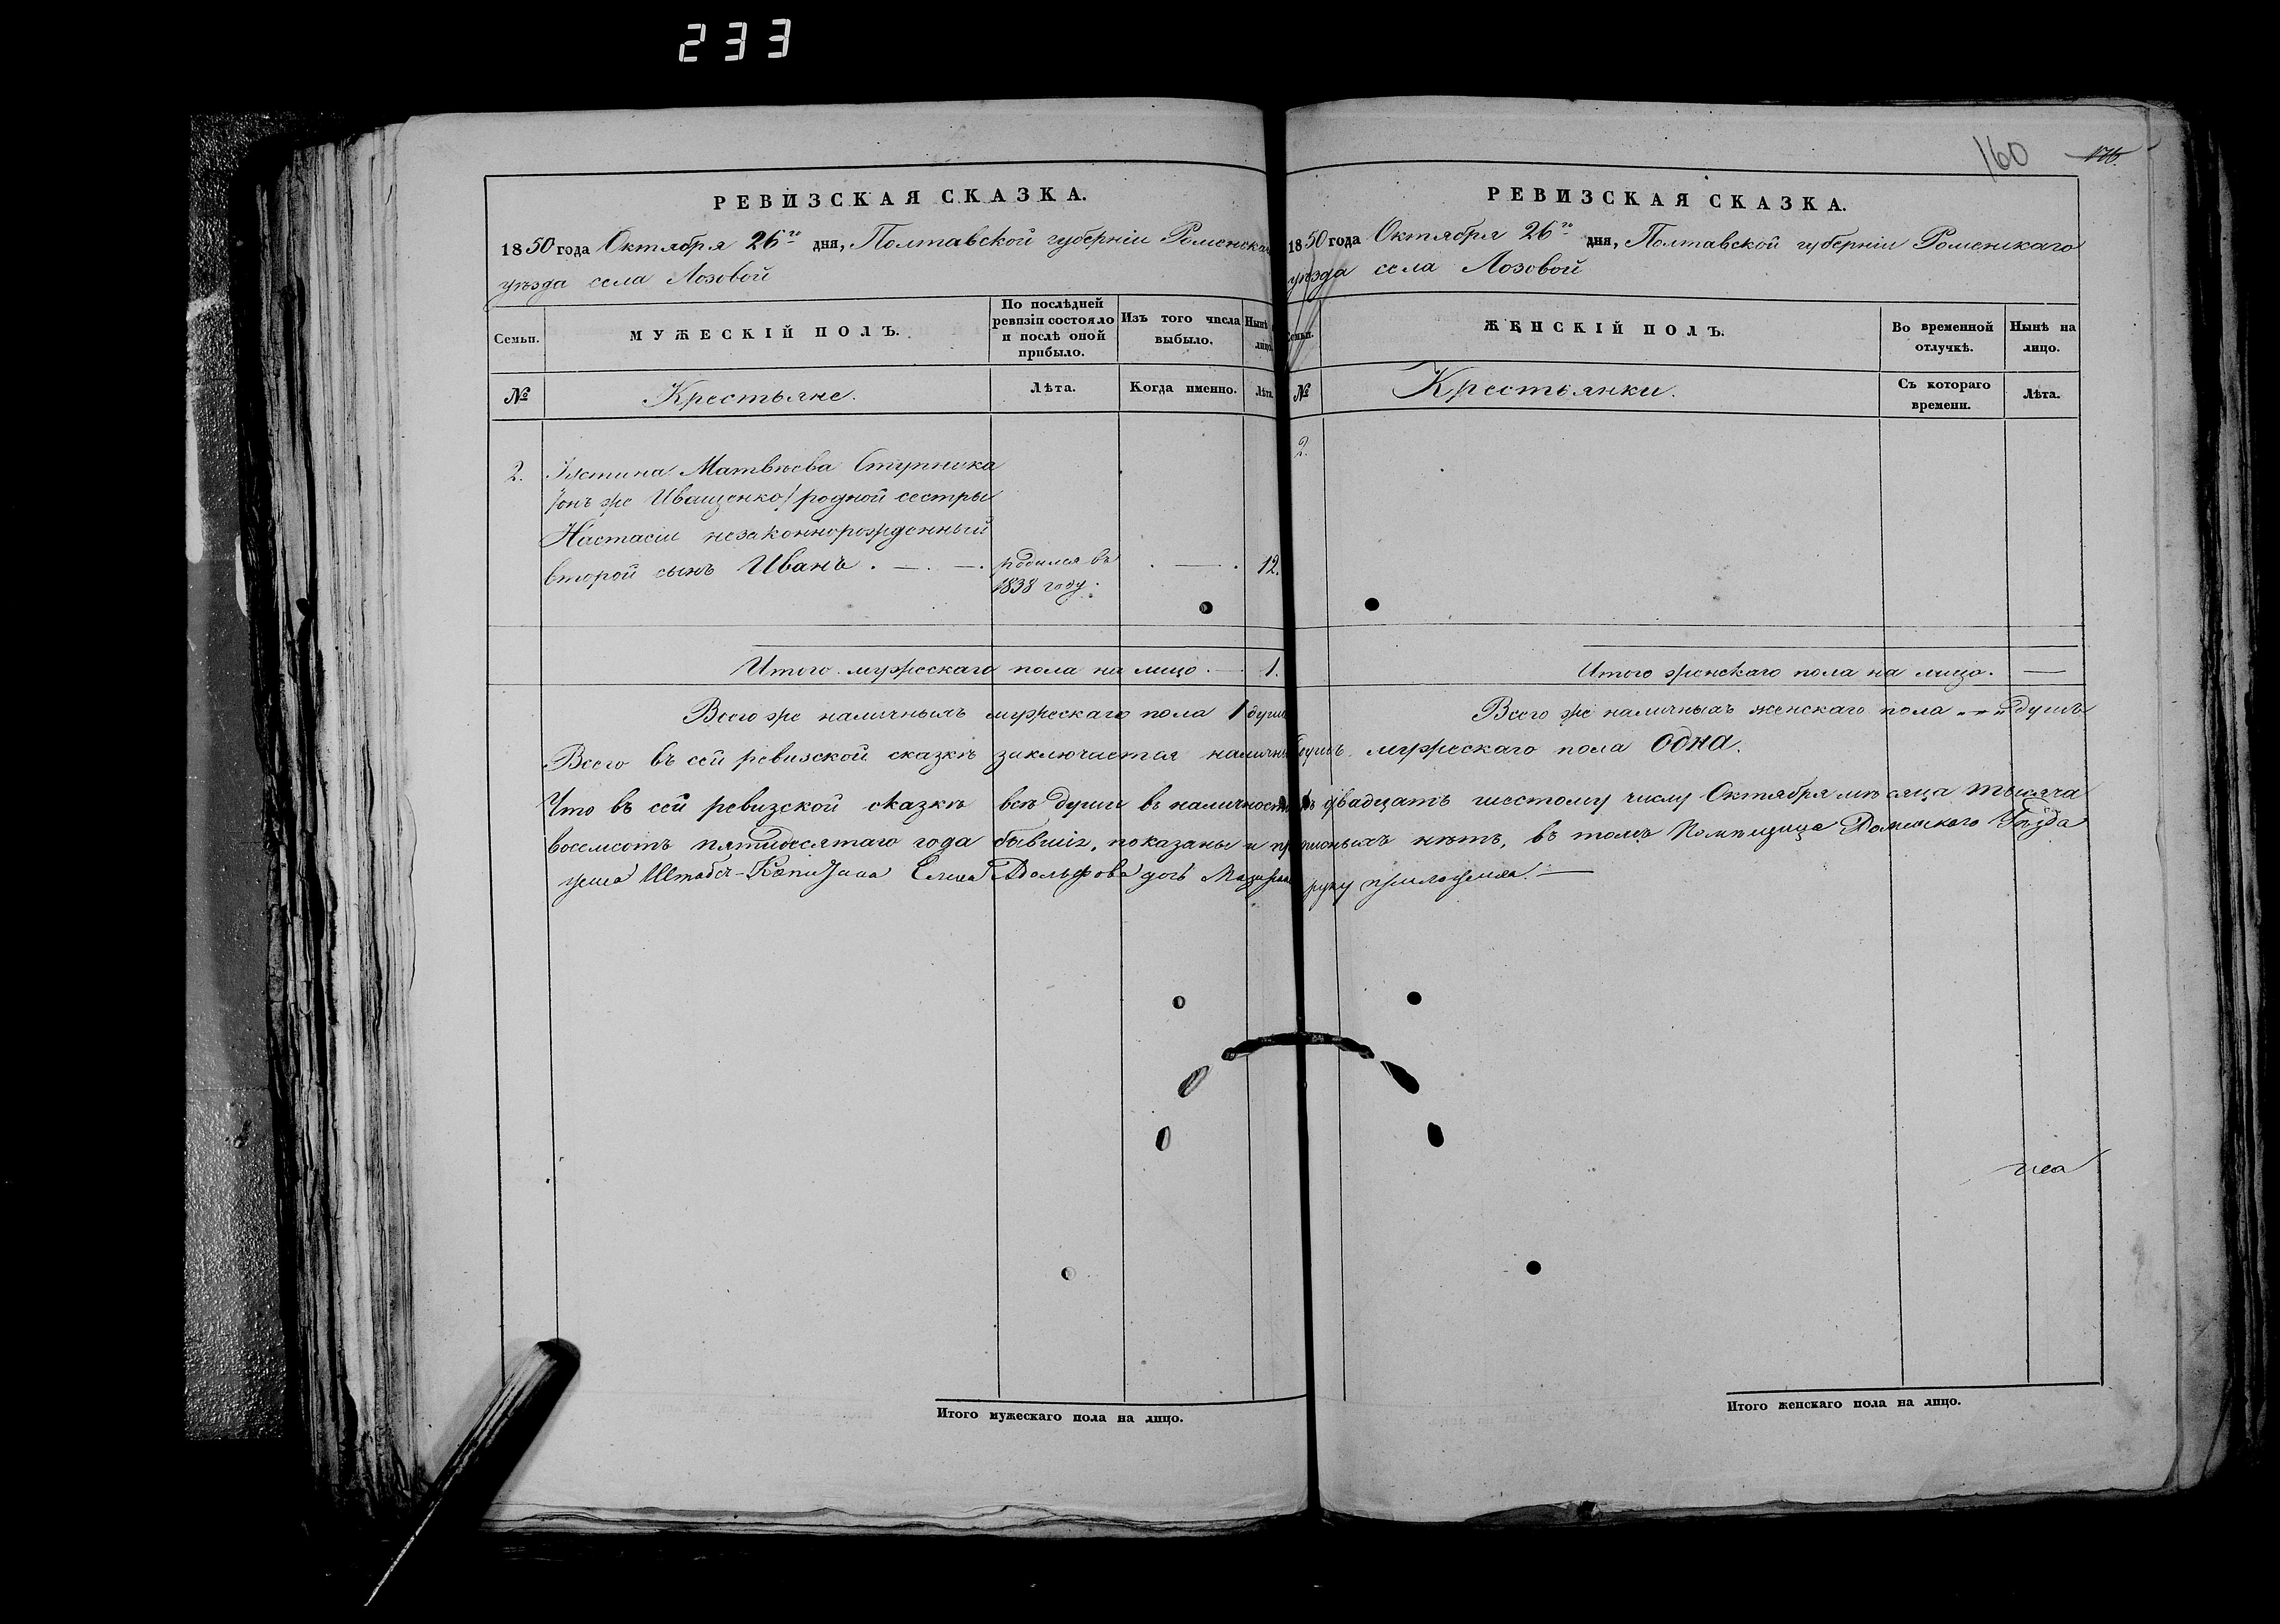 233
160
РЕВИЗСКАЯ СКАЗКА.
1850 года Октября 26го дня, Полтавской губерніи Роменска
уѣзда села Лозовой
Семьи.
МУЖЕСКІЙ ПОЛЪ.
По послѣдней ревизіи состояло и послѣ оной прибыло.
Изъ того числа выбыло.
Нынѣ лицо
№
Крестьяне.
Лѣта.
Когда именно.
Лѣта.
2. Устина Матвѣева Ступника
/онъ же Иващенко/ родной сестры
Настасіи незаконнорожденный
второй сынъ Иванъ . — . — . родился въ . — . 12.
1838 году.
Итого мужескаго пола на лицо . — 1.
Всего же наличныхъ мужескаго пола 1 душа
РЕВИЗСКАЯ СКАЗКА.
1850 года Октября 26го дня, Полтавской губерніи Роменскаго
уѣзда села Лозовой
Семьи.
ЖЕНСКІЙ ПОЛЪ.
Во временной отлучкѣ.
Нынѣ на лицо.
№
Крестьянки.
Съ котораго времени.
Лѣта.
2.
Итого женскаго пола на лицо. —
Всего же наличныхъ женскаго пола „ — „ душъ
Всего въ сей ревизской сказкѣ заключается наличныхъ душъ мужескаго пола одна.
Что въ сей ревизской сказкѣ всѣ души въ наличности къ двадцать шестому числу Октября мѣсяца тысяча
восемсотъ пятидесятаго года бывшіе, показаны и прописныхъ нѣтъ, въ томъ Помѣщица Роменского Уѣзда
Штабсъ-Капитана Елена Адольфова дочь руку приложила. —
Итого мужескаго пола на лицо.
Итого женскаго пола на лицо.